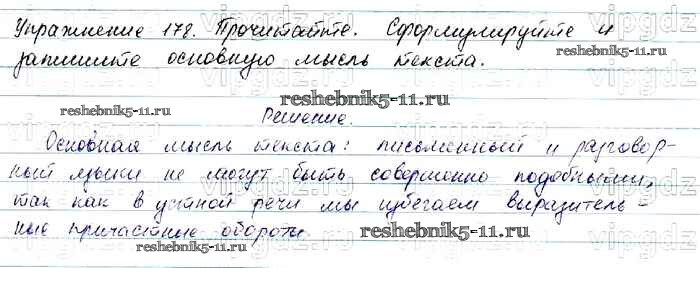 Упражнение 178. Прочитайте. Сформулируйте и
запишите основную мысль текста.
reshebnik5-11.ru
reshebnik5-11.ru
reshebnik5-11.ru
Решение.
Основная мысль текста: письменный и разговор-
ный языки не могут быть совершенно подобными,
так как в устной речи мы избегаем выразитель-
ные причастные обороты.
reshebnik5-11.ru
reshebnik5-11.ru
vipgdz
vipgdz
vipgdz
vipgdz